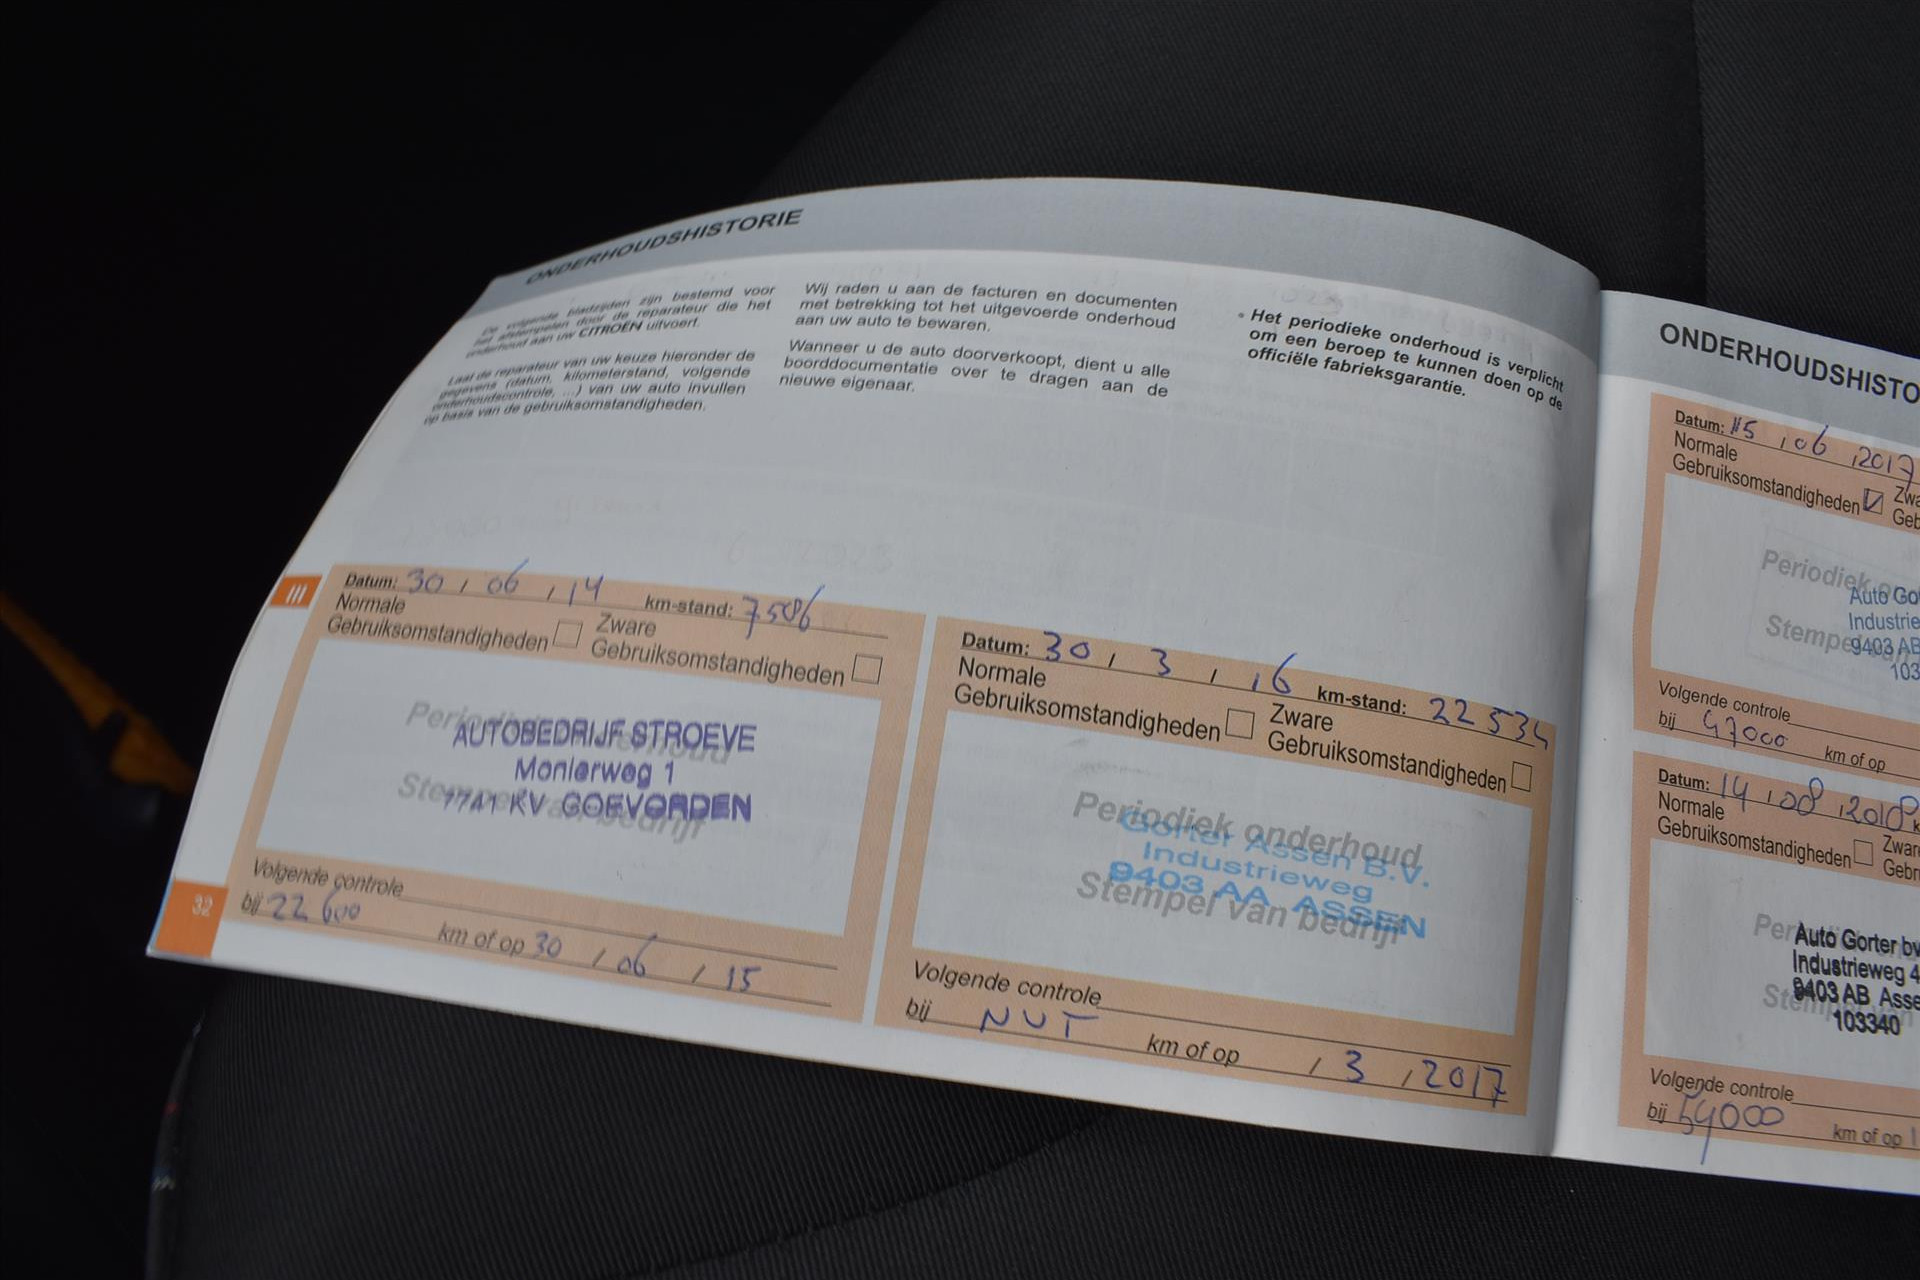 ONDERHOUDSHISTORIE
De volgende bladzijden zijn bestemd voor
het afstempelen door de reparateur die het
onderhoud aan uw CITROËN uitvoert.
Laat de reparateur van uw keuze hieronder de
gegevens (datum, kilometerstand, volgende
onderhoudscontrole, ...) van uw auto invullen
op basis van de gebruiksomstandigheden.
Wij raden u aan de facturen en documenten
met betrekking tot het uitgevoerde onderhoud
aan uw auto te bewaren.
Wanneer u de auto doorverkoopt, dient u alle
boorddocumentatie over te dragen aan de
nieuwe eigenaar.
• Het periodieke onderhoud is verplicht
om een beroep te kunnen doen op de
officiële fabrieksgarantie.
III
Datum: 30 / 06 / 14 km-stand: 7586
Normale
Gebruiksomstandigheden
Zware
Gebruiksomstandigheden
Periodiek onderhoud
Stempel van bedrijf
AUTOBEDRIJF STROEVE
Monierweg 1
7741 KV COEVORDEN
Volgende controle
bij 22600 km of op 30 / 06 / 15
32
Datum: 30 / 3 / 16 km-stand: 22534
Normale
Gebruiksomstandigheden
Zware
Gebruiksomstandigheden
Periodiek onderhoud
Stempel van bedrijf
Gorter Assen B.V.
Industrieweg
9403 AA ASSEN
Volgende controle
bij NUT km of op / 3 / 2017
ONDERHOUDSHISTO
Datum: 15 / 06 / 2017
Normale
Gebruiksomstandigheden
Zwa
Geb
Periodiek o
Stempel van
Auto Go
Industrie
9403 AB
103
Volgende controle
bij 47000 km of op
Datum: 14 / 08 / 2018 k
Normale
Gebruiksomstandigheden
Zwar
Gebr
Auto Gorter bv
Industrieweg 4
9403 AB Asse
103340
Volgende controle
bij 54000 km of op 1